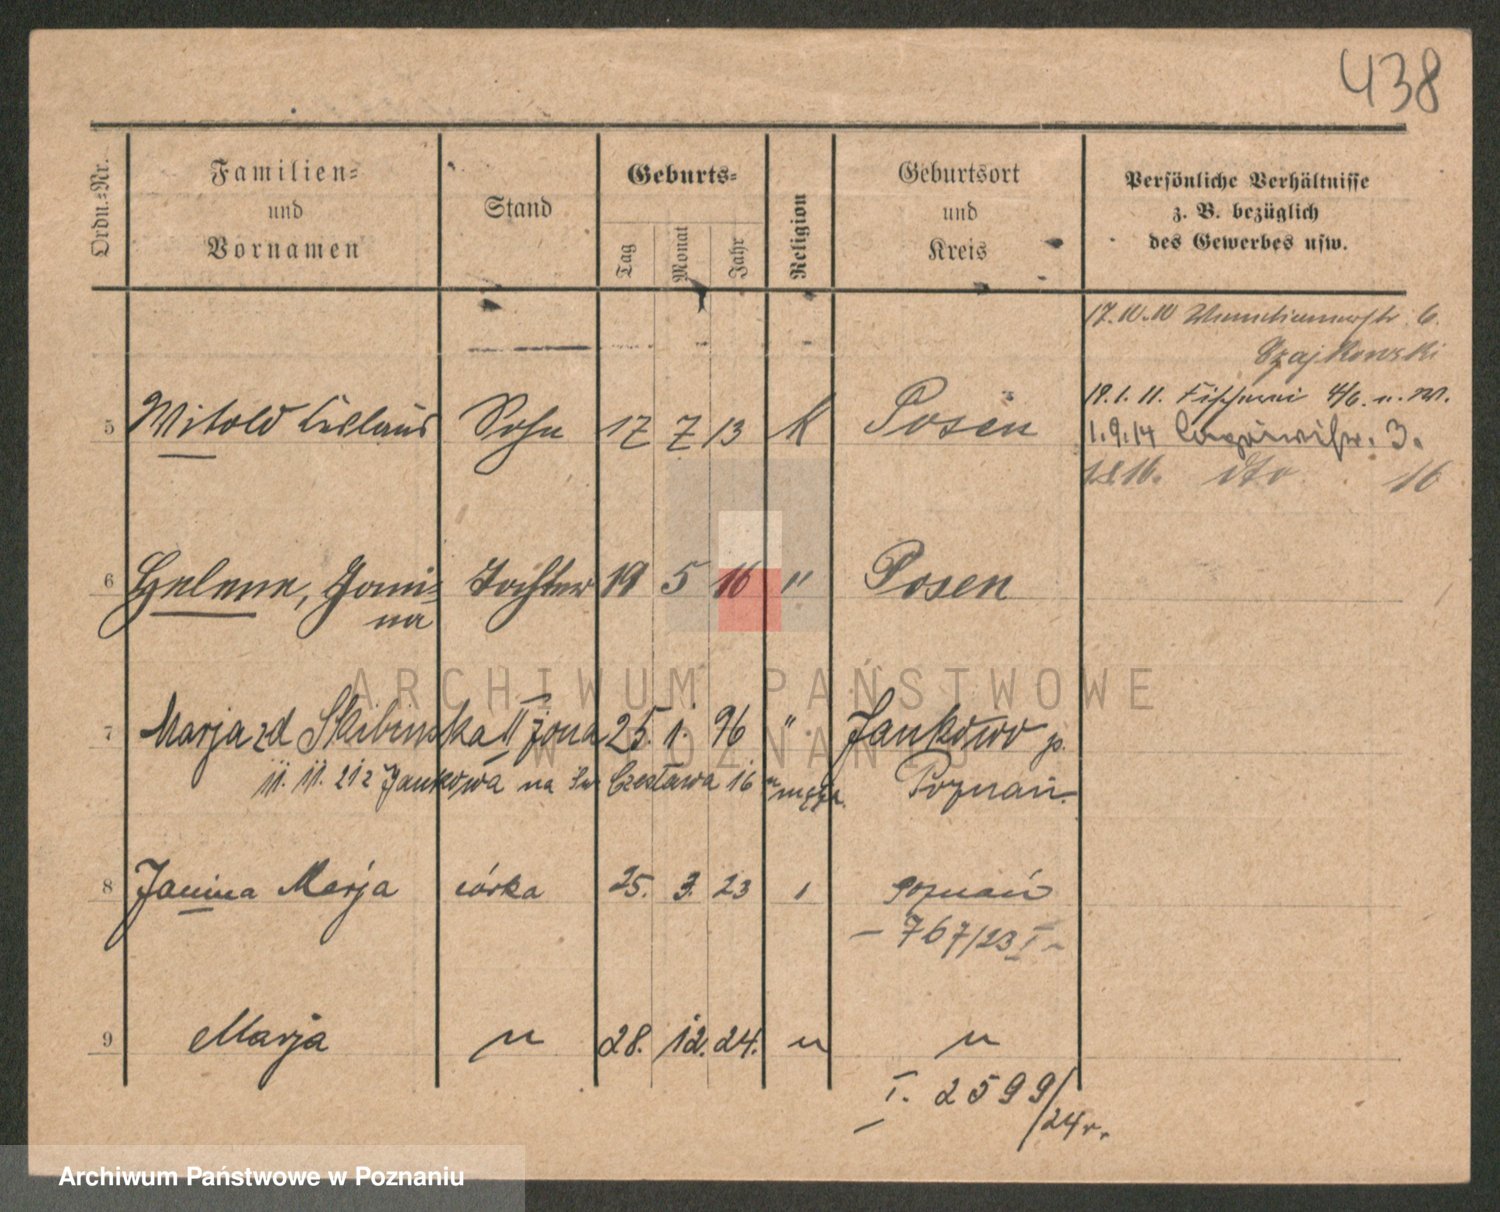 438
Ordn.-Nr.
Familien-
und
Vornamen
Stand
Geburts-
Tag
Monat
Jahr
Religion
Geburtsort
und
Kreis
Persönliche Verhältnisse
z. B. bezüglich
des Gewerbes usw.
17.10.10 6.
Szajkowski
19.1.11. 4/6. u. W.
5 Witold Sohn 17 7 13 K Posen
1.9.14 3.
dto 16
6 Helene, Jani- Tochter 19 5 16 " Posen
na
7 Marja zd Skibinska II żona 25. 1. 96 " Jankowo p.
11. 11. 212 Jankowa na Czesława 16 męża. Poznań.
8 Janina Marja córka 25. 3. 23 Poznań
– 767/23 I –
9 Marja " 28. 12. 24. " "
I. 2599/24 r.
ARCHIWUM PAŃSTWOWE
W POZNANIU
Archiwum Państwowe w Poznaniu